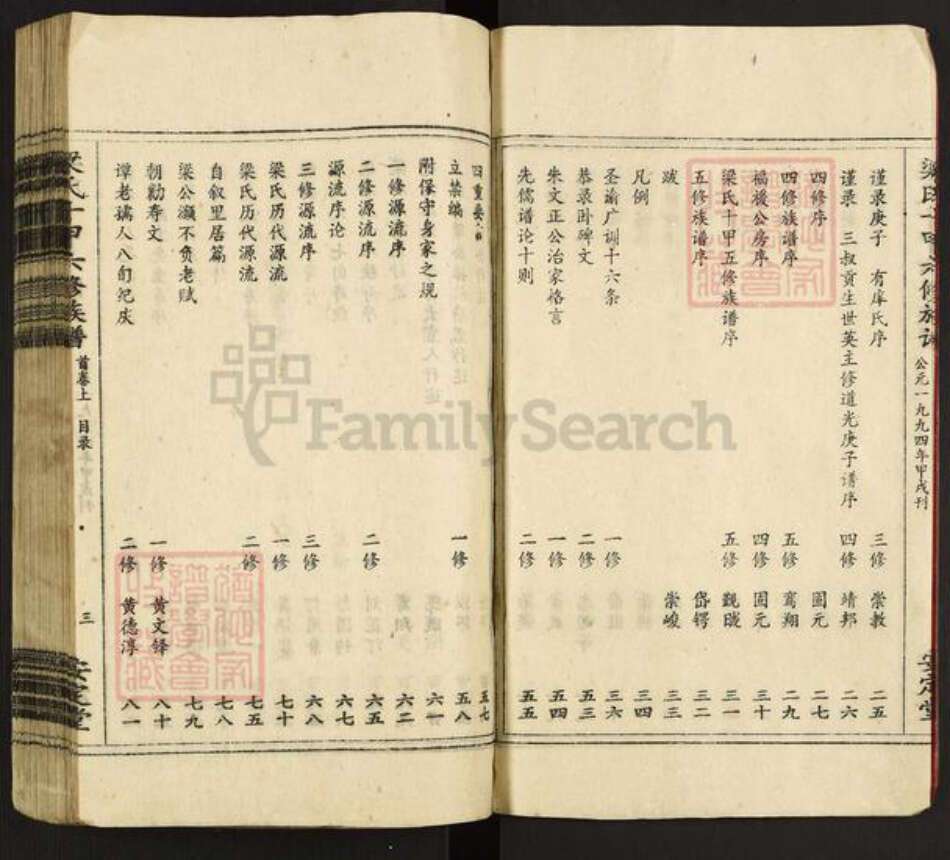 公元一九九四年甲戌刊
安定堂
谨录庚子 有库氏序 三修 崇教 二五
谨录 三叔贡生世英主修道光庚子谱序 四修 靖邦 二六
四修序 固元 二七
四修族谱序 五修 鸾翔 二九
福援公房序 四修 固元 三十
梁氏十甲五修族谱序 五修 觐晠 三一
五修族谱序 岱锷 三二
跋 崇峻 三三
凡例 三四
圣谕广训十六条 一修 三六
恭录卧碑文 二修 五三
朱文正公治家格言 一修 五四
先儒谱论十则 二修 五五
五七
立禁端 一修 五八
附保守身家之规 六一
一修源流序 六二
二修源流序 二修 六五
源流序论 六七
三修源流序 三修 六八
梁氏历代源流 一修 七十
梁氏历代源流 二修 七五
自叙里居篇 七八
梁公濒不负老赋 七九
朝勷寿文 一修 黄文铎 八十
谭老孺人八旬纪庆 二修 黄德淳 八一
梁氏十甲六修族谱 首卷上 目录 三 安定堂
FamilySearch